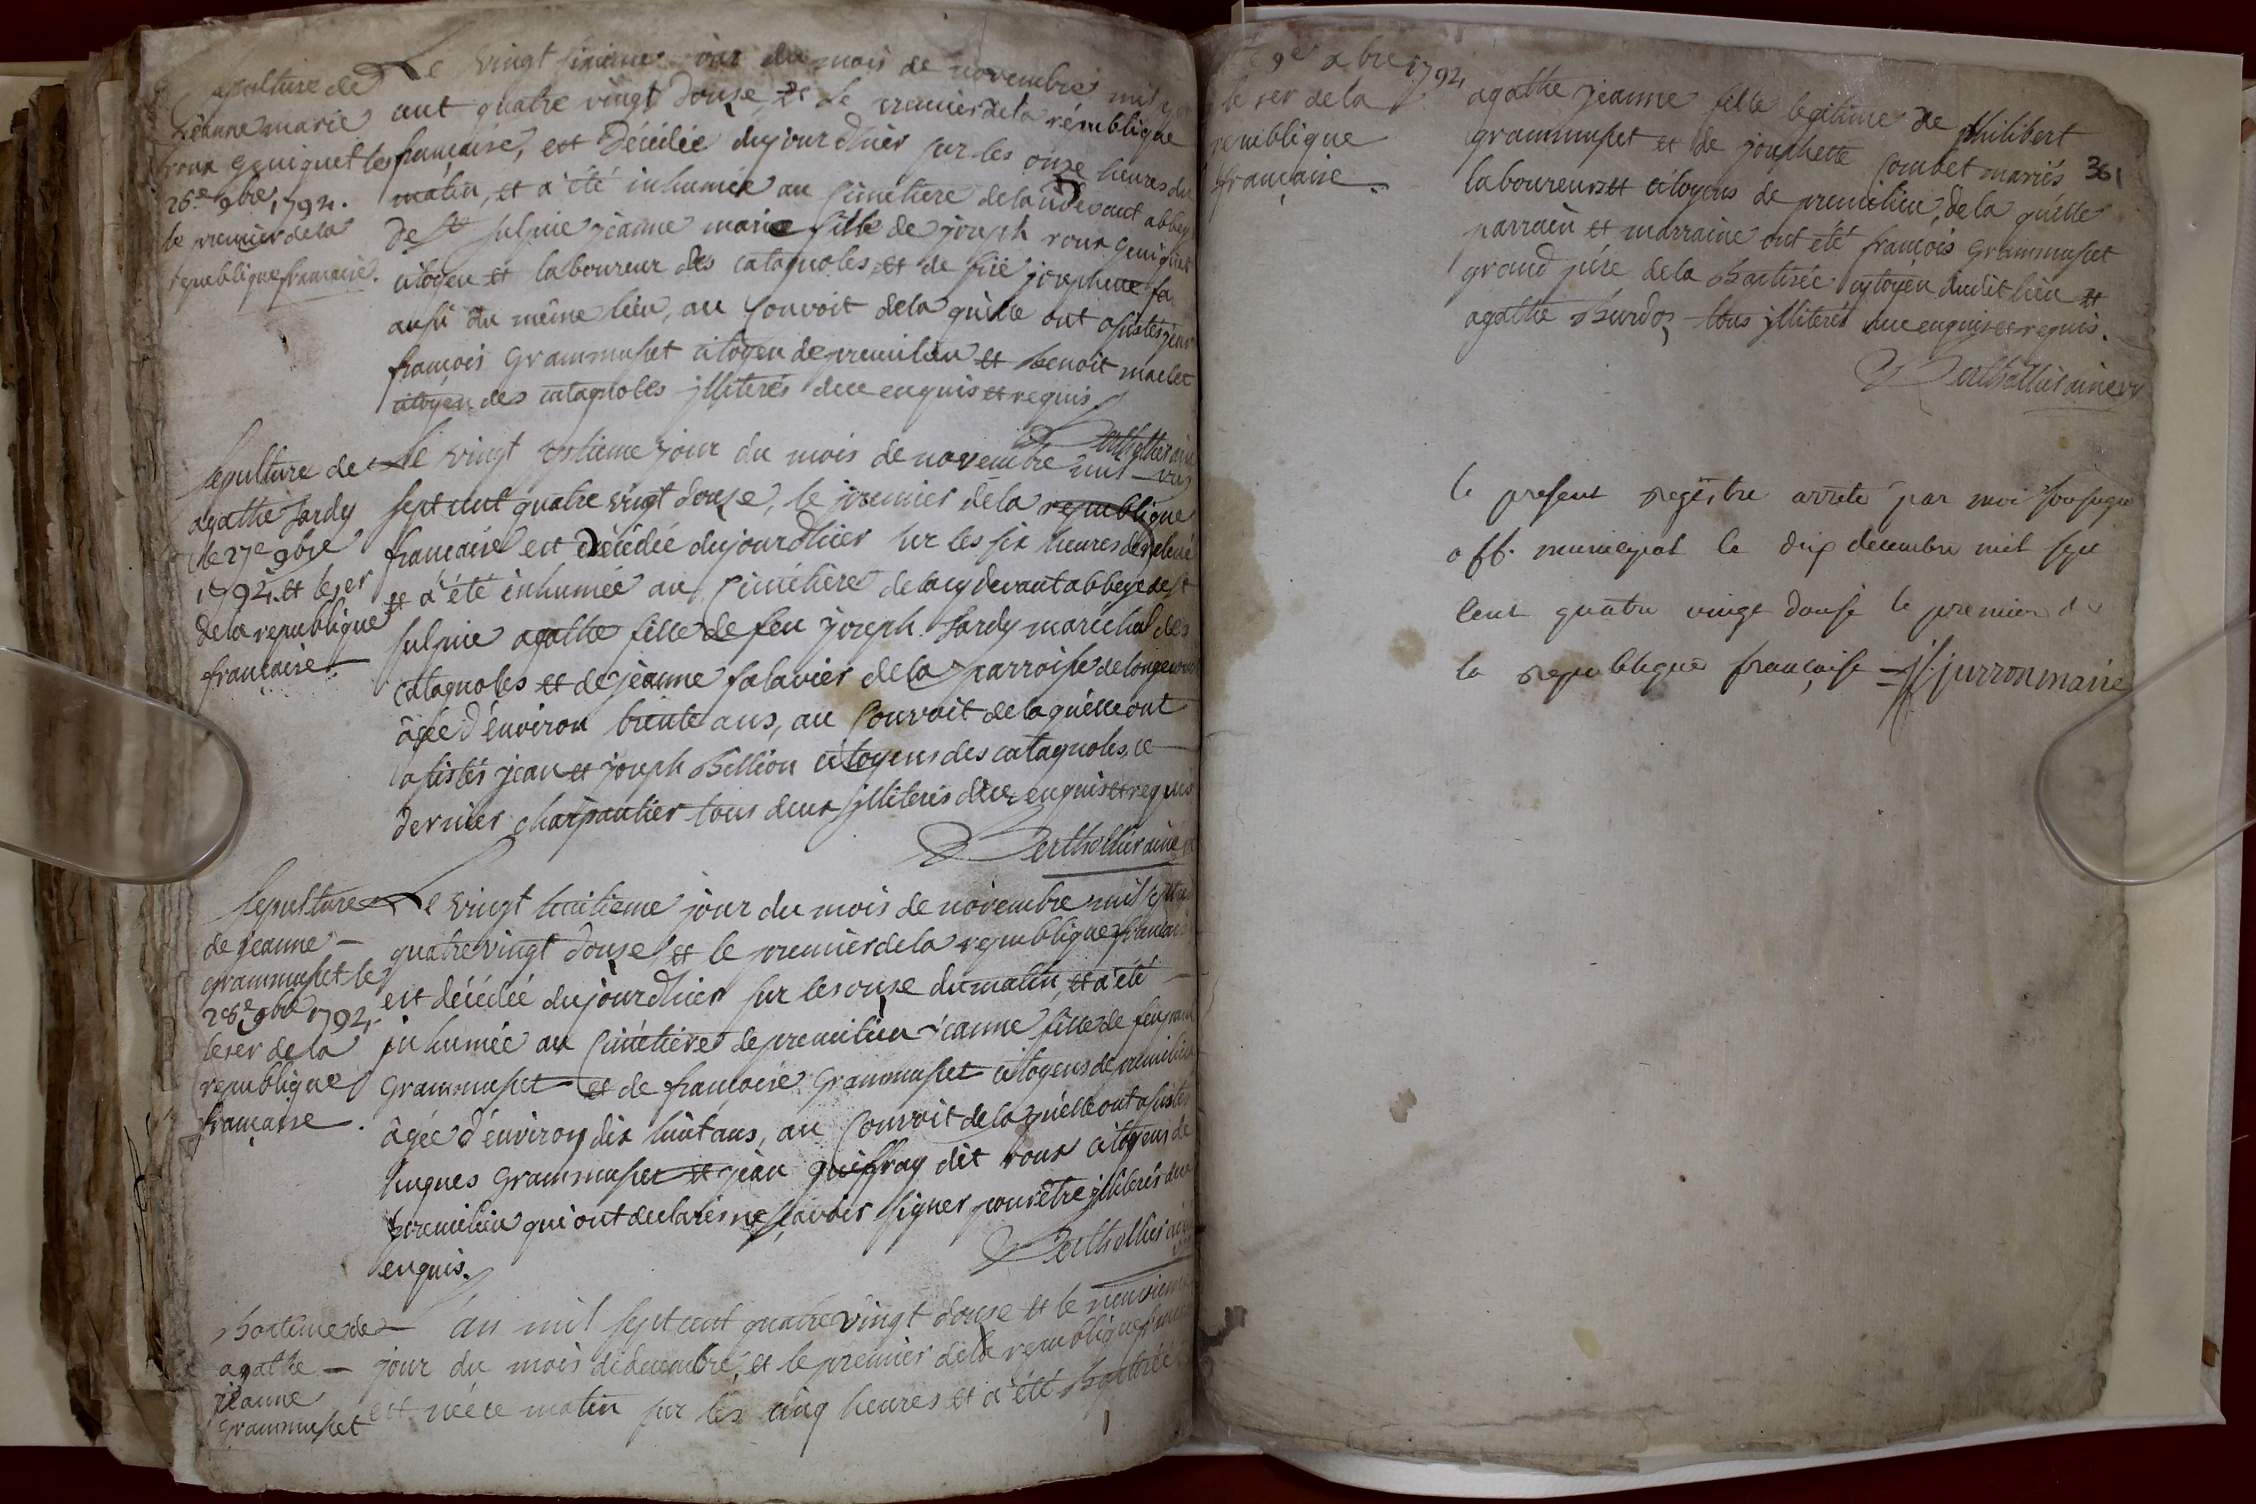 Sepulture de
jeanne marie
roux Guiquet le
26e 9bre 1792.
le premier de la
republique francaise.
Le vingt sixieme jour du mois de novembre mil sept
cent quatre vingt douse, et le premier de la republique
francaise, est décédée du jour d'hier sur les onse heures du
matin, et a été inhumée au Cimetiere de la cy devant abbeye
de St Sulpice jeanne marie fille de joseph roux Guiquet
citoyen et laboureur des catagnoles et de
aussi du même lieu, au Convoit de la quelle ont assistés
françois Grammusset citoyen de premilieu et benoit maclet
citoyen des catagnoles illiterés de ce enquis et requis.
Berthollier aine
vre
Sepulture de
agathe Jardy
le 27e 9bre
1792. et le 1er
de la republique
francaise.
Le vingt septieme jour du mois de novembre mil
sept cent quatre vingt douse, le premier de la republique
francaise est décédée du jour d'hier sur les six heures de relevé
et a été inhumée au Cimétiére de la cy devant abbeye de St
sulpice agathe fille de feu joseph Jardy maréchal des
catagnoles et de jeanne falavier de la parroisse de
âgée d'environ trente ans, au Convoit de la quelle ont
assistés jean et joseph Billion citoyens des catagnoles, ce
dernier charpantier tous deux illiterés de ce enquis et requis
Berthollier ainé
Sepulture
de jeanne
grammusset le
28e 9bre 1792,
le 1er de la
republique
francaise.
Le vingt huitieme jour du mois de novembre mil sept cent
quatre vingt douse, et le premier de la republique francaise
est décédée du jour d'hier sur les onse du matin, et a été
inhumée au Cimétiére de premilieu jeanne fille de feu
Grammusset et de francoise Grammusset citoyens de premilieu
âgée d'environ dix huit ans, au Convoit de la quelle ont assistés
hugues Grammusset et jean guiffray dit roux citoyens de
premilieu qui ont declarés ne sçavoir signer pour être illiterés de ce
enquis.
Berthollier ainé
Bateme de
agathe
jeanne
Grammusset
L'an mil sept cent quatre vingt douse et le neuvieme
jour du mois de decembre, et le premier de la republique francaise
est née ce matin sur les cinq heures et a été Baptisée
le 9e xbre 1792,
le 1er de la
republique
francaise.
361
agathe jeanne fille legitime de philibert
grammusset et de josephette Combet mariés
laboureurs et citoyens de premilieu, de la quelle
parrain et marraine ont été françois Grammusset
grand pére de la Baptisée citoyen du dit lieu et
agathe Burdos tous illiterés de ce enquis et requis.
Berthollier ainé vre
le present registre arreté par moi soussigné
off. municipal le dix decembre mil sept
cent quatre vingt douse le premier de
la republique francaise jf. jurron maire